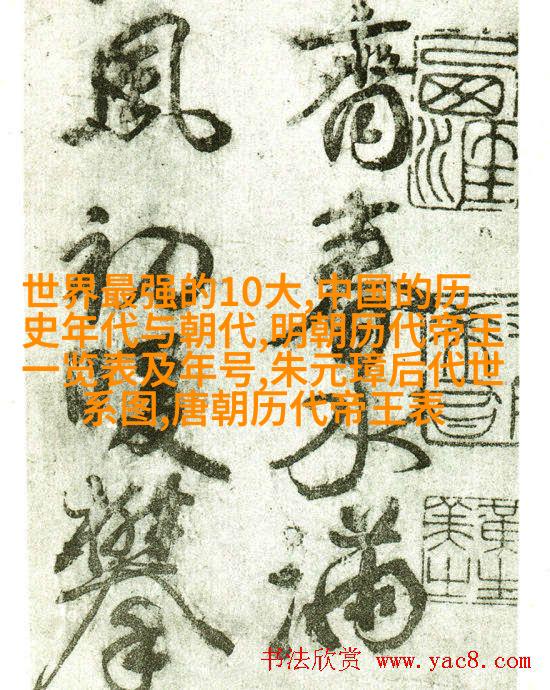 水满
風初暖攀
世界最强的10大,中国的历
史年代与朝代,明朝历代帝王
一览表及年号,朱元璋后代世
系图,唐朝历代帝王表
书法欣赏 www.yac8.com